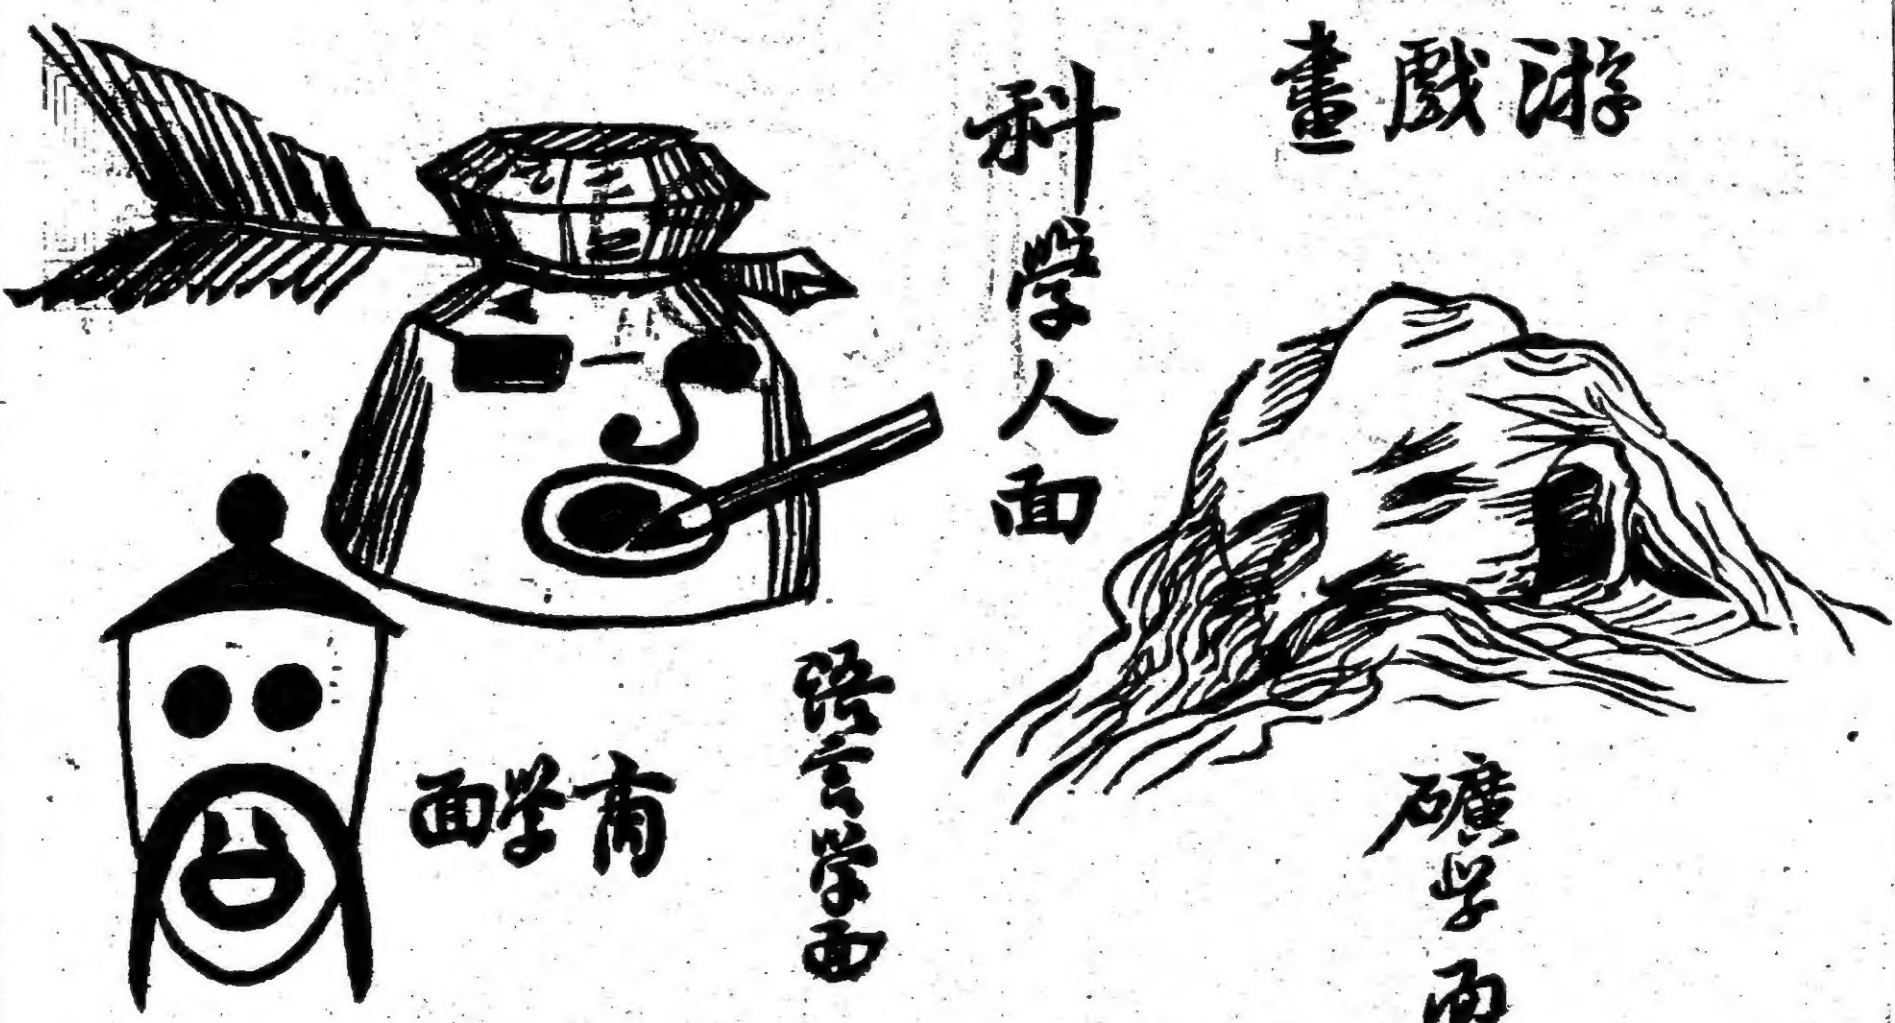 游戲畫
科學人面
礦学面
語言學面
商學面